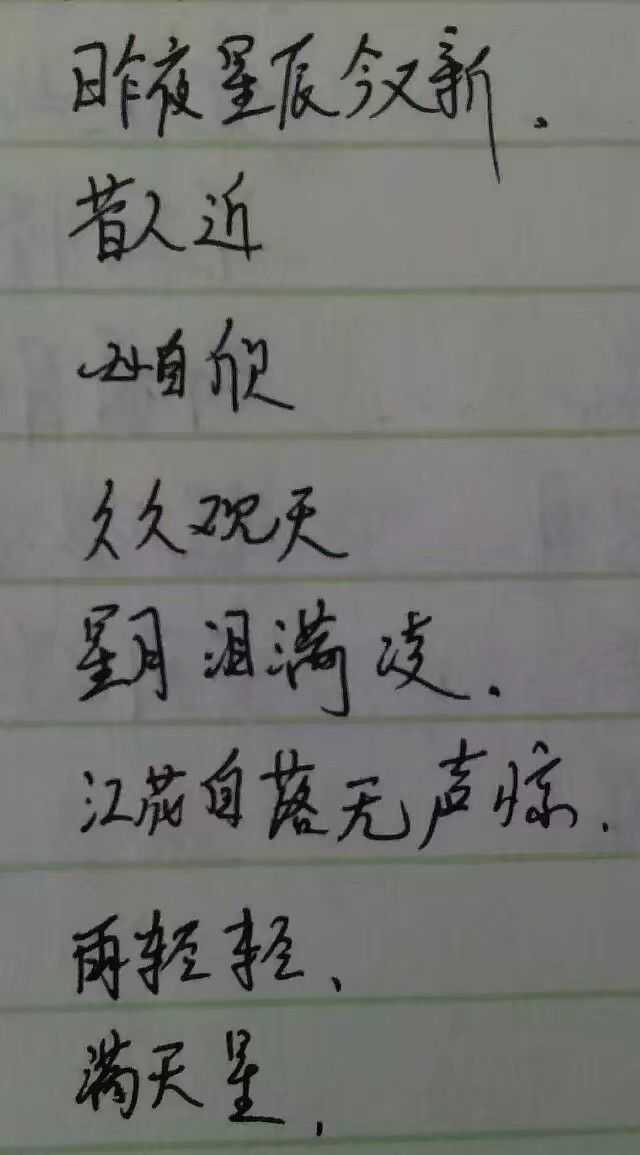 昨夜星辰今又新.
昔人近
自欣
久久观天
星月泪满凌.
江花自落无声惊.
雨轻轻、
满天星.